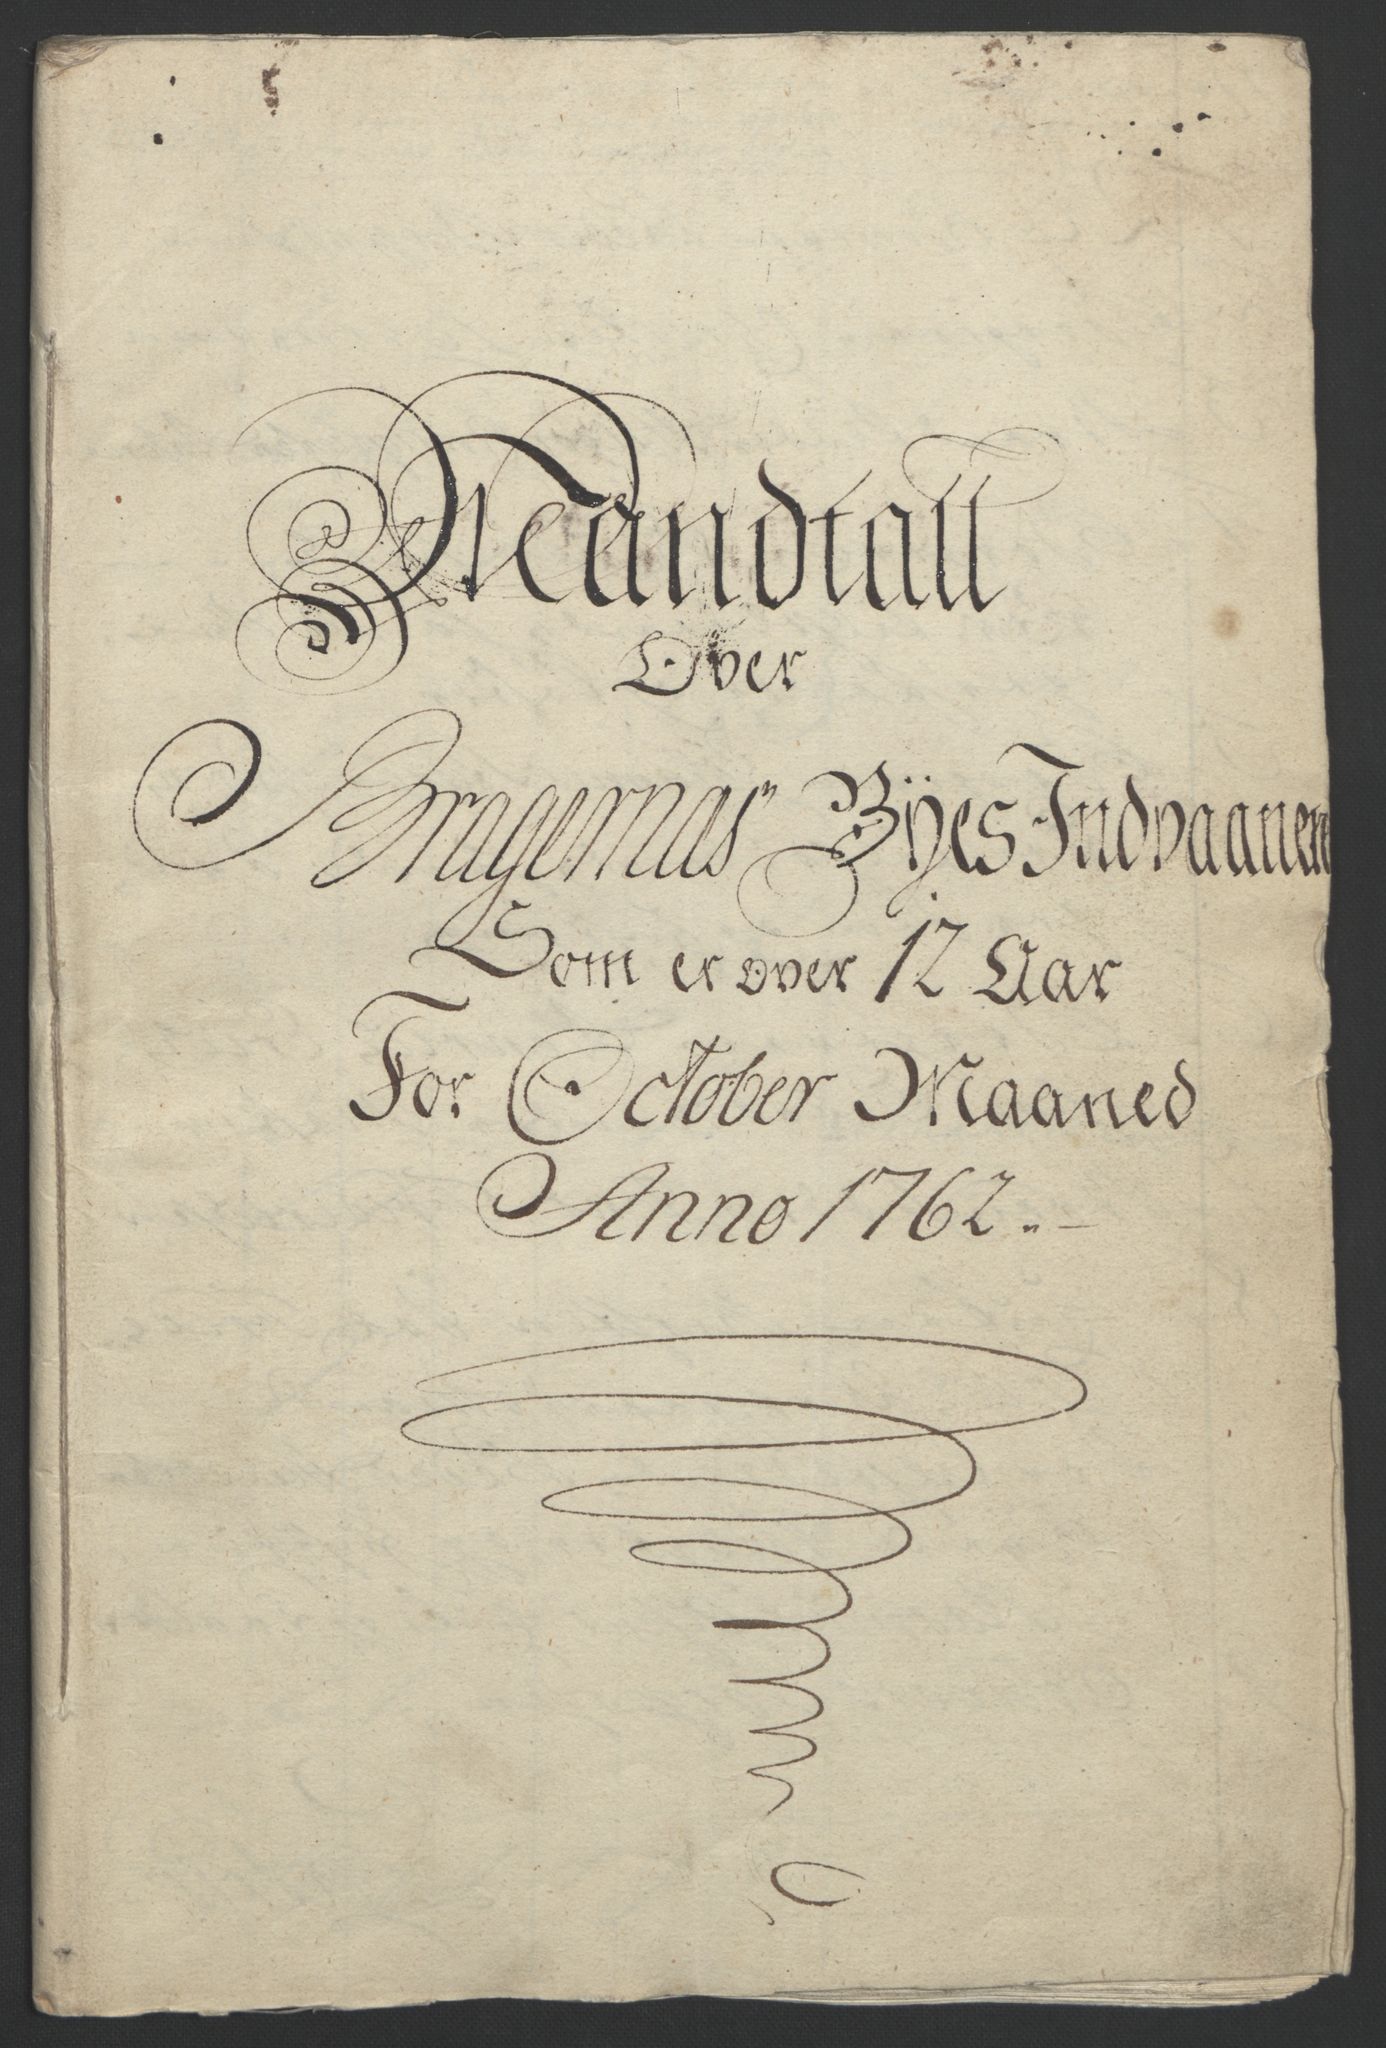 Mandtall
Over
Bragernas Bÿes Indvaanere
Som er over 12 Aar
For October Maaned
Anno 1762.